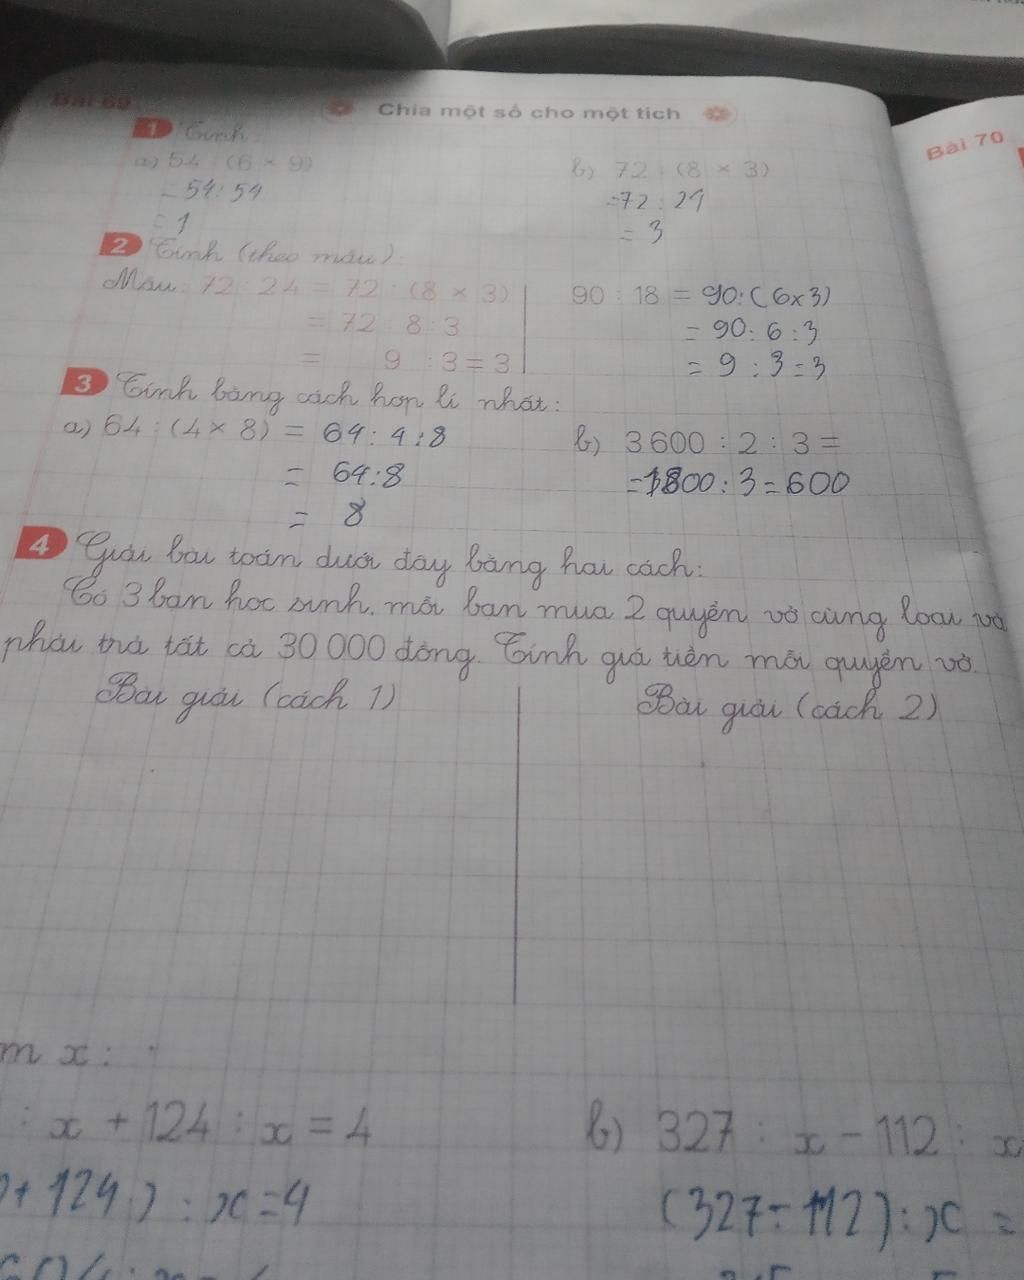 Bài 69
Chia một số cho một tích
Bài 70
1 Tính
a) 54 : (6 × 9)
= 54 : 54
= 1
b) 72 : (8 × 3)
= 72 : 24
= 3
2 Tính (theo mẫu):
Mẫu: 72 : 24 = 72 : (8 × 3)
= 72 : 8 : 3
= 9 : 3 = 3
90 : 18 = 90 : (6 x 3)
= 90 : 6 : 3
= 9 : 3 = 3
3 Tính bằng cách hợp lí nhất:
a) 64 : (4 × 8) = 64 : 4 : 8
= 64 : 8
= 8
b) 3 600 : 2 : 3 =
= 1800 : 3 = 600
4 Giải bài toán dưới đây bằng hai cách:
Có 3 bạn học sinh, mỗi bạn mua 2 quyển vở cùng loại và
phải trả tất cả 30 000 đồng. Tính giá tiền mỗi quyển vở.
Bài giải (cách 1)
Bài giải (cách 2)
m x:
: x + 124 : x = 4
+ 124) : x = 4
b) 327 : x - 112 : x
(327 - 112) : x =